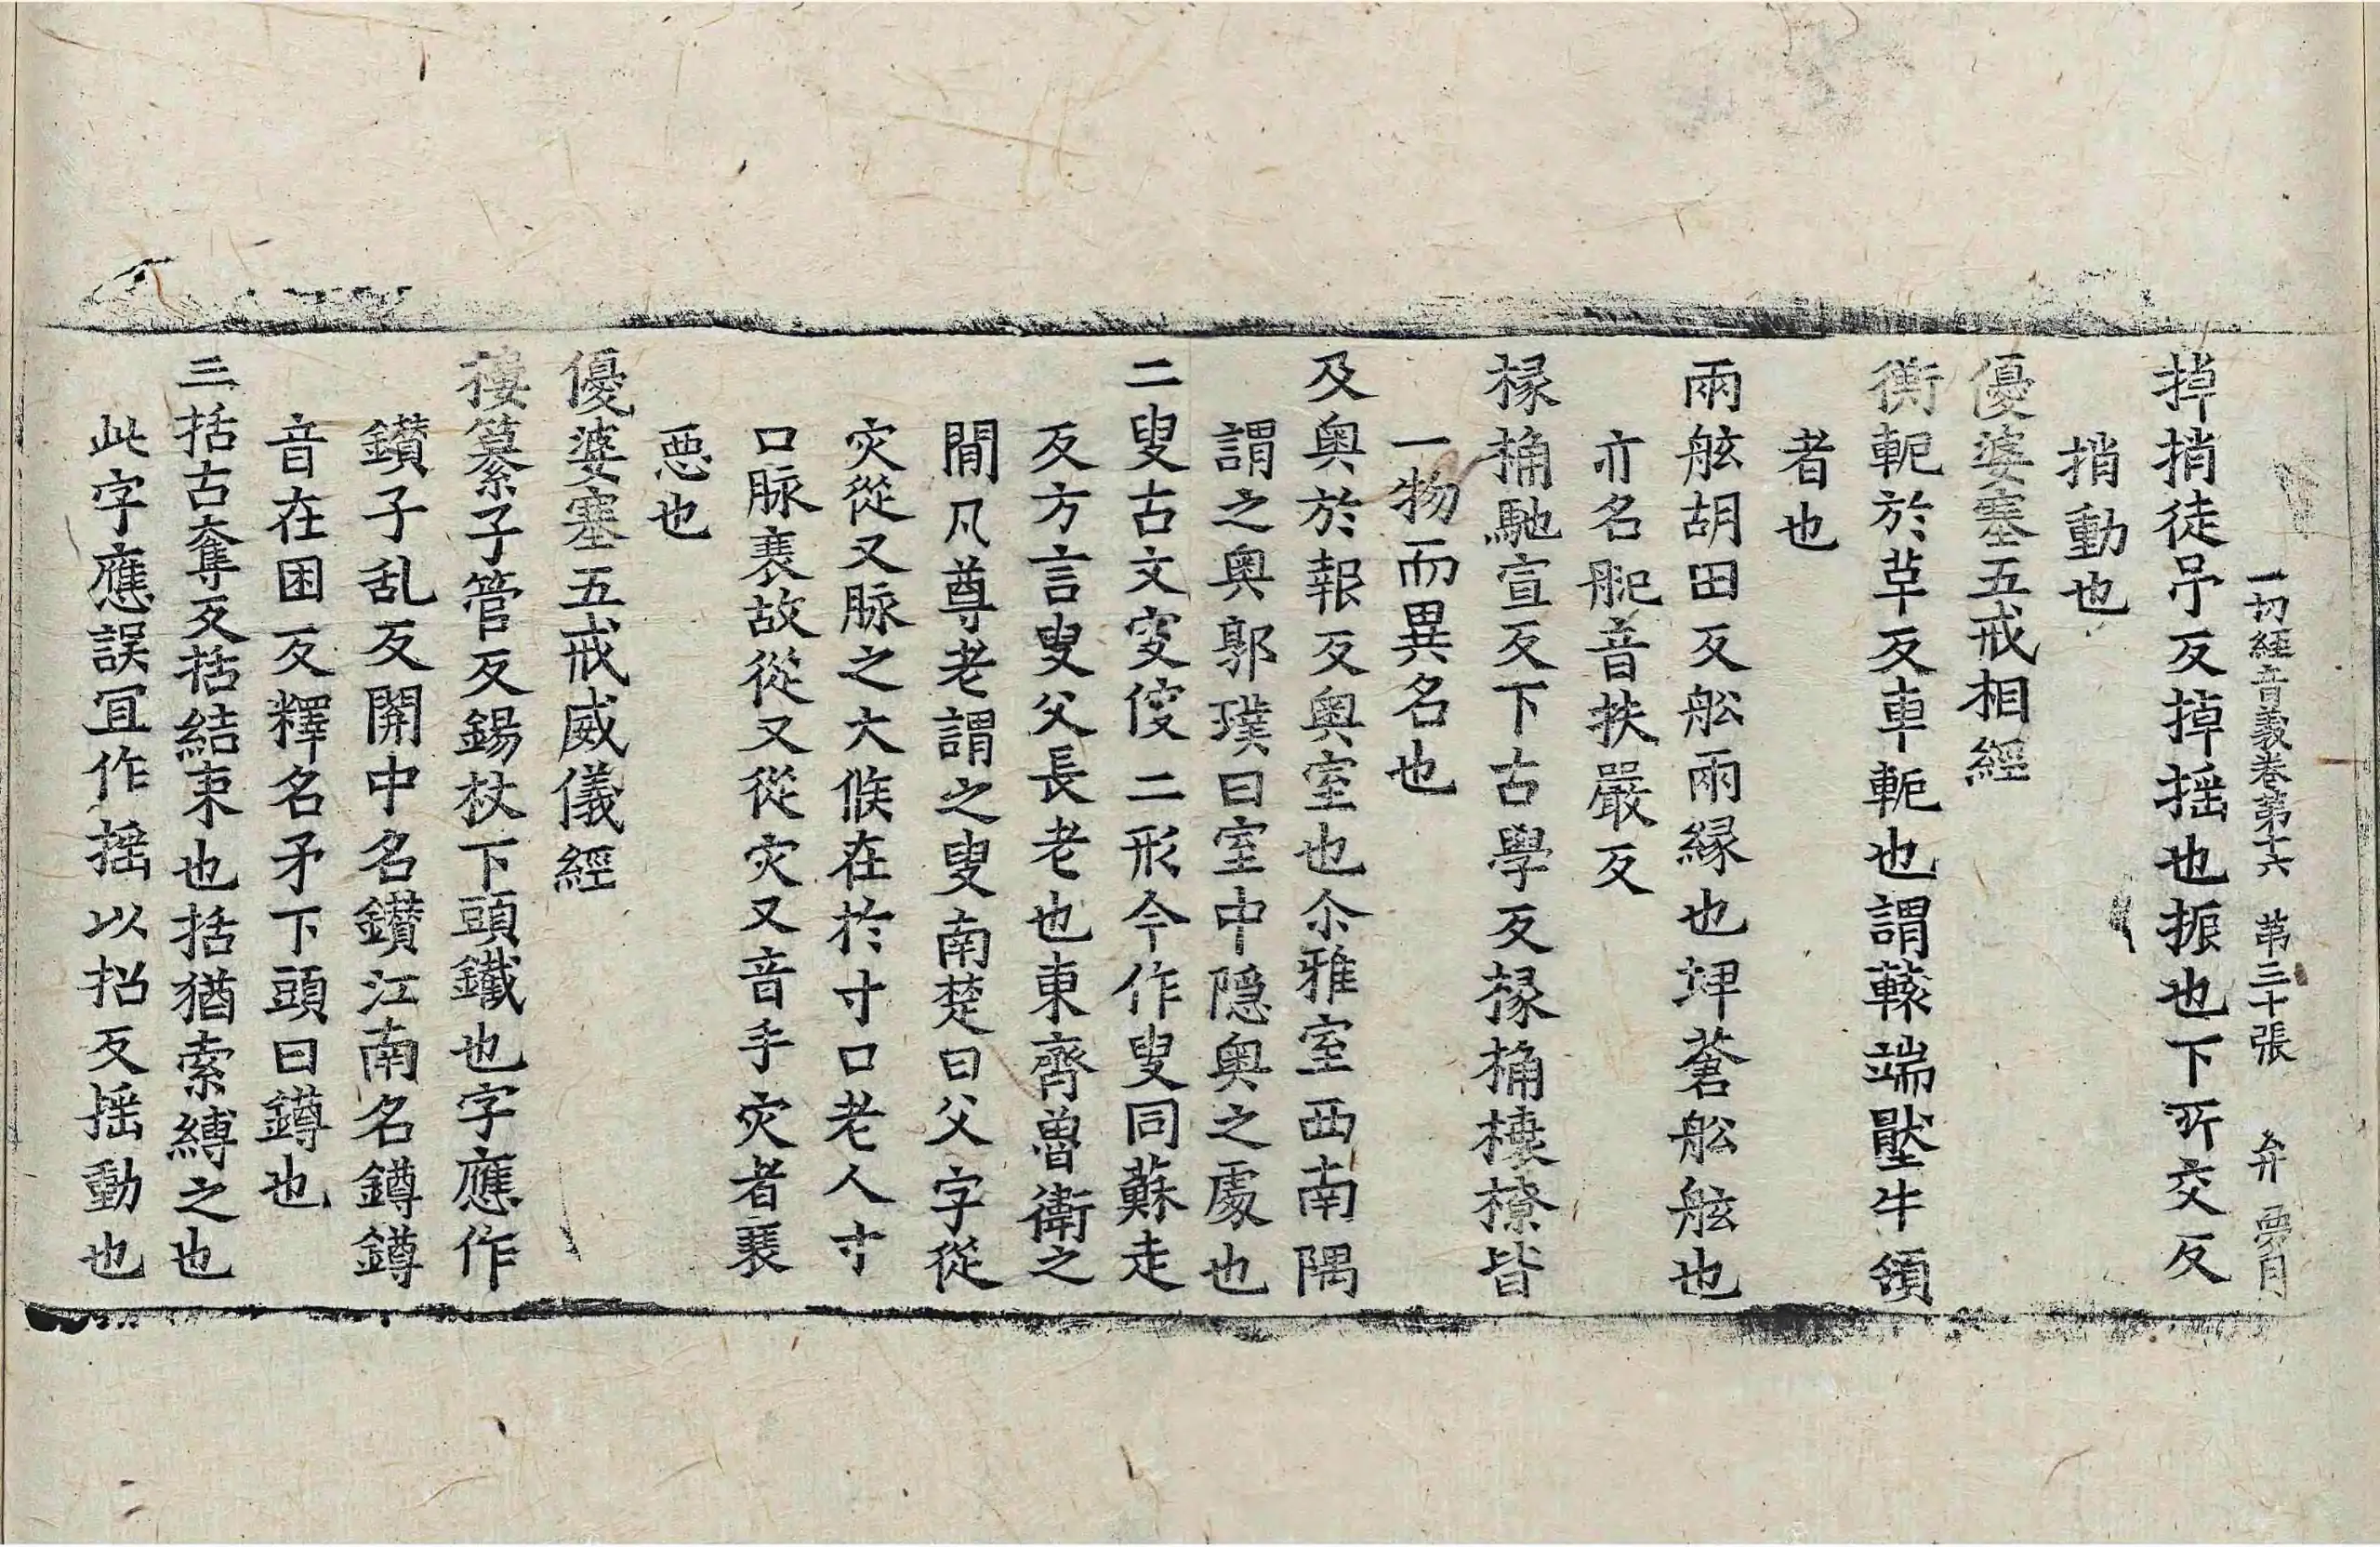 一切經音義卷第十六 苐三十張 弁
掉捎徒吊反掉搖也振也下所交反
捎動也
優婆塞五戒相經
衡軛於革反車軛也謂轅端壓牛領
者也
兩舷胡田反舩兩緣也埤蒼舩舷也
亦名舥音扶嚴反
椽桷馳宣反下古學反椽桷榱橑皆
一物而異名也
及奧於報反奧室也尒雅室西南隅
謂之奧郭璞曰室中隱奧之處也
二叟古文㝜傁二形今作叟同蘇走
反方言叟父長老也東齊魯衛之
間凡尊老謂之叟南楚曰父字從
灾從又脉之大候在於寸口老人寸
口脉衰故從又從灾又音手灾者衰
惡也
優婆塞五戒威儀經
纂子管反錫杖下頭鐵也字應作
鑚子乱反關中名鑚江南名鐏鐏
音在困反釋名矛下頭曰鐏也
三括古奪反括結束也括猶索縛之也
此字應誤冝作搖以招反搖動也